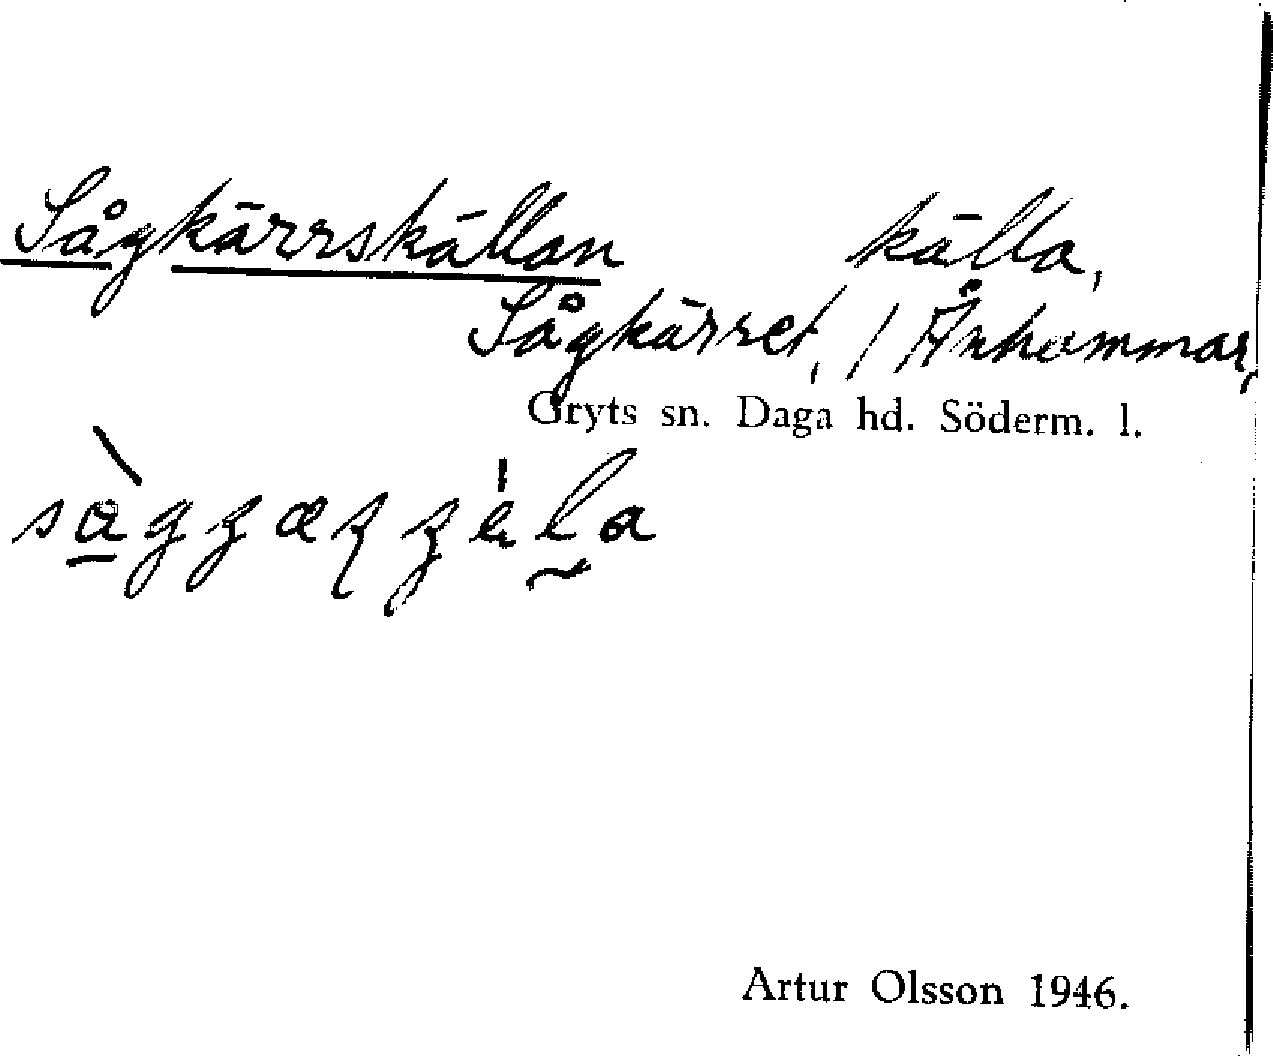 Sågkärrskällan källa,
Sågkärret, / Ånhammar,
Gryts sn. Daga hd. Söderm. l.
Artur Olsson 1946.